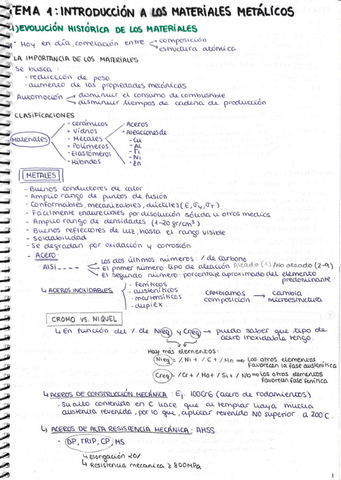 TEMA 1: INTRODUCCIÓN A LOS MATERIALES METÁLICOS
1) EVOLUCIÓN HISTÓRICA DE LOS MATERIALES
Hoy en día, correlación entre composición
estructura atómica
LA IMPORTANCIA DE LOS MATERIALES
Se busca:
- reducción de peso
- aumento de las propiedades mecánicas
Automoción → disminuir el consumo de combustible
→ disminuir tiempos de cadena de producción
CLASIFICACIONES
Materiales
- Cerámicos
- Vidrios
- Metales
- Polímeros
- Elastómeros
- Híbridos
- Aceros
- Aleaciones de:
- Cu
- Al
- Ti
- Ni
- Zn
METALES
- Buenos conductores de calor
- Amplio rango de puntos de fusión
- Conformables, mecanizables, dúctiles (E, σy, σT)
- Fácilmente endurecidos por disolución sólida u otros medios
- Amplio rango de densidades (1-20 gr/cm³)
- Buenos reflectores de luz, hasta el rango visible
- Soldabilidad
- Se degradan por oxidación y corrosión
- ACERO
AISI _ _ _ _
Los dos últimos números: % de carbono
El primer número tipo de aleación Aleado (1) / No aleado (2-9)
El segundo número: porcentaje aproximado del elemento
predominante.
↳ ACEROS INOXIDABLES
- ferríticos
- austeníticos
- martensíticos
- duplex
cambiamos composición → cambia microestructura
CROMO VS. NIQUEL
↳ En función del % de Nieq y Creq → puedo saber que tipo de
acero inoxidable tengo.
Hay más elementos:
Nieq = % Ni + % C + % Mn → Los otros elementos
favorecen la fase austenítica
Creq = % Cr + % Mo + % Si + % Nb → Los otros elementos
favorecen fase ferrítica
↳ ACEROS DE CONSTRUCCIÓN MECÁNICA: Ej. 100Cr6 (acero de rodamientos)
- Su alto contenido en C hace que al templar haya mucha
austenita revenida, por lo que, aplicar revenido NO superior a 200ºC.
↳ ACEROS DE ALTA RESISTENCIA MECÁNICA: AHSS
- DP, TRIP, CP, MS
↳ Elongación > 20%
↳ Resistencia mecánica ≥ 800 MPa
1